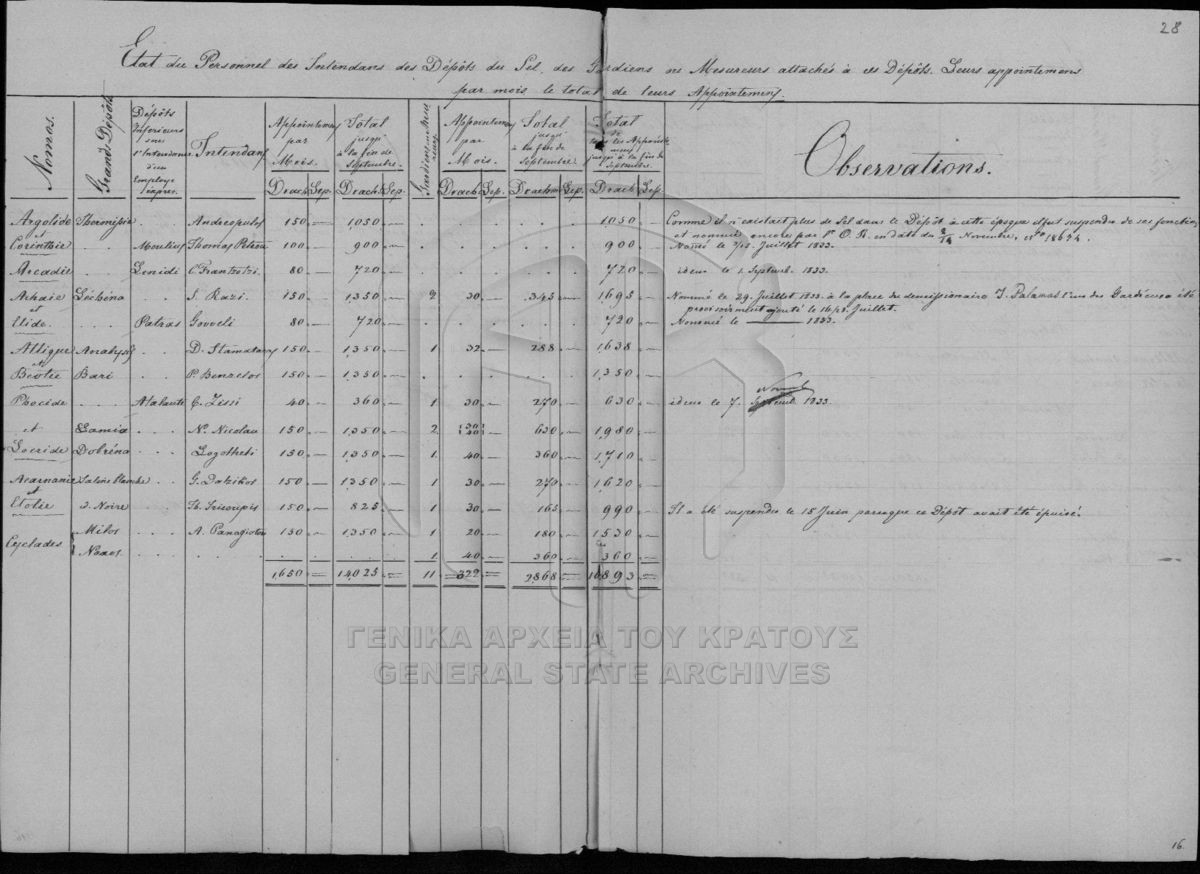 28
Etat du Personnel des Intendans des Dépôts du Sel, des Gardiens ou Mesureurs attachés à ces Dépôts. Leurs appointemens
par mois le total de leurs Appointemens.
Nomos. Grands Dépôts Dépôts Inferieurs sous l'Intendance d'un Employé Intendans Appointemens par Mois. Total jusqu' à la fin de Septembre. Gardiens ou Mesureurs Appointemens par Mois. Total jusqu' à la fin de Septembre Total de tous les Appointemens jusqu'à la fin de Septembre Observations.
Drach. Lep. Drach. Lep. Drach. Lep. Drach. Lep. Drach. Lep.
Argolide Thermisia . Andreopulos 150 — 1,050 — . . . . . 1,050 — Comme il n'existait plus de Sel dans le Dépôt à cette époque il fut suspendu de ses fonctions
et et nommé encore par l'O. R. en date du 2/14 Novembre, No 18624.
Corinthie Moulius Thomas Petrou 100 — 900 — . . . . . 900 — Nomé le 3/15 Juillet 1833.
Arcadie Lenidi C. Frantzezi. 80 — 720 — . . . . . 720 — idem le 1. Septemb. 1833.
Achaie Léchéna . . S. Razi. 150 — 1,350 — 2 30 — 345 — 1695 — Nommé le 29. Juillet 1833. à la place du demissionaire J. Palamas l'un des Gardiens a été
et provisoirement ajouté le 16/28 Juillet.
Elide. . . . . Patras Gouveli 80 — 720 — . . . . . 720 — Nommé le ——— 1833.
Attique Anabyss . . D. Stamatary 150 — 1,350 — 1 32 — 288 — 1,638 —
et
Béotie Bari . . P. Benzelos 150 — 1,350 — . . . . . 1,350 —
Phocide . . . Atalante C. Zissi 40 — 360 — 1 30 — 270 — 630 — idem le 7. Septemb. Novemb 1833.
et Lamia . . . N. Nicolau 150 — 1,350 — 2 {30 40} — 630 — 1,980 —
Locride Dobréna . . . Logotheti 150 — 1,350 — 1 40 — 360 — 1,710 —
Acarnanie Saline blanche . . G. Datzikos 150 — 1,350 — 1 30 — 270 — 1,620 —
et
Etolie S. Noire . . . Th. Tricoupis 150 — 825 — 1 30 — 165 — 990 — Il a été suspendu le 15 Juin parceque ce Dépôt avait été épuisé.
Milos . . . A. Panagiotou 150 — 1,350 — 1 20 — 180 — 1530 —
Cyclades
Naxos . . . . . . . 1 40 — 360 — 360 —
1,650 — 14,025 — 11 322 — 2868 — 16893 —
ΓΕΝΙΚΑ ΑΡΧΕΙΑ ΤΟΥ ΚΡΑΤΟΥΣ
GENERAL STATE ARCHIVES
16.